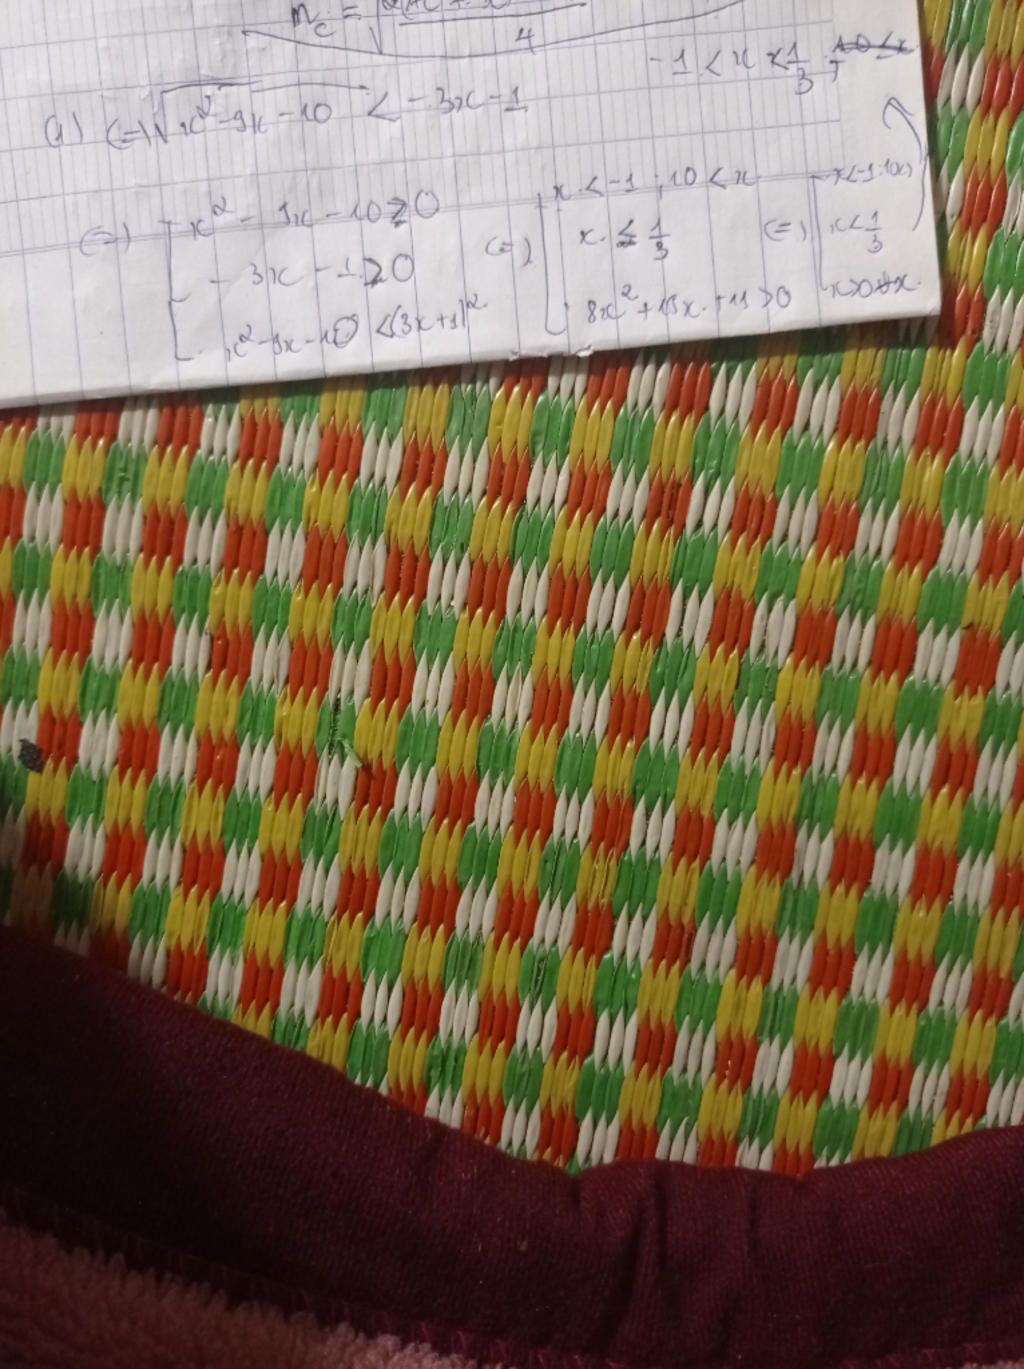 -1 < x < 1/3
a) (=) √x² - 9x - 10 < -3x - 1
(=) [ x² - 9x - 10 ≥ 0
- 3x - 1 ≥ 0
x² - 9x - 10 < (3x + 1)²
(=) [ x < -1 ; 10 < x
x ≤ 1/3
8x² + 15x + 11 > 0
(=) [ x < -1 ; 10 < x
x < 1/3
x > 0 ∀x